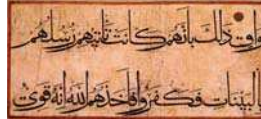 واق ذلك بانهم كانت تاتيهم رسلهم
بالبينات فكفروا فاخذهم الله انه قوي